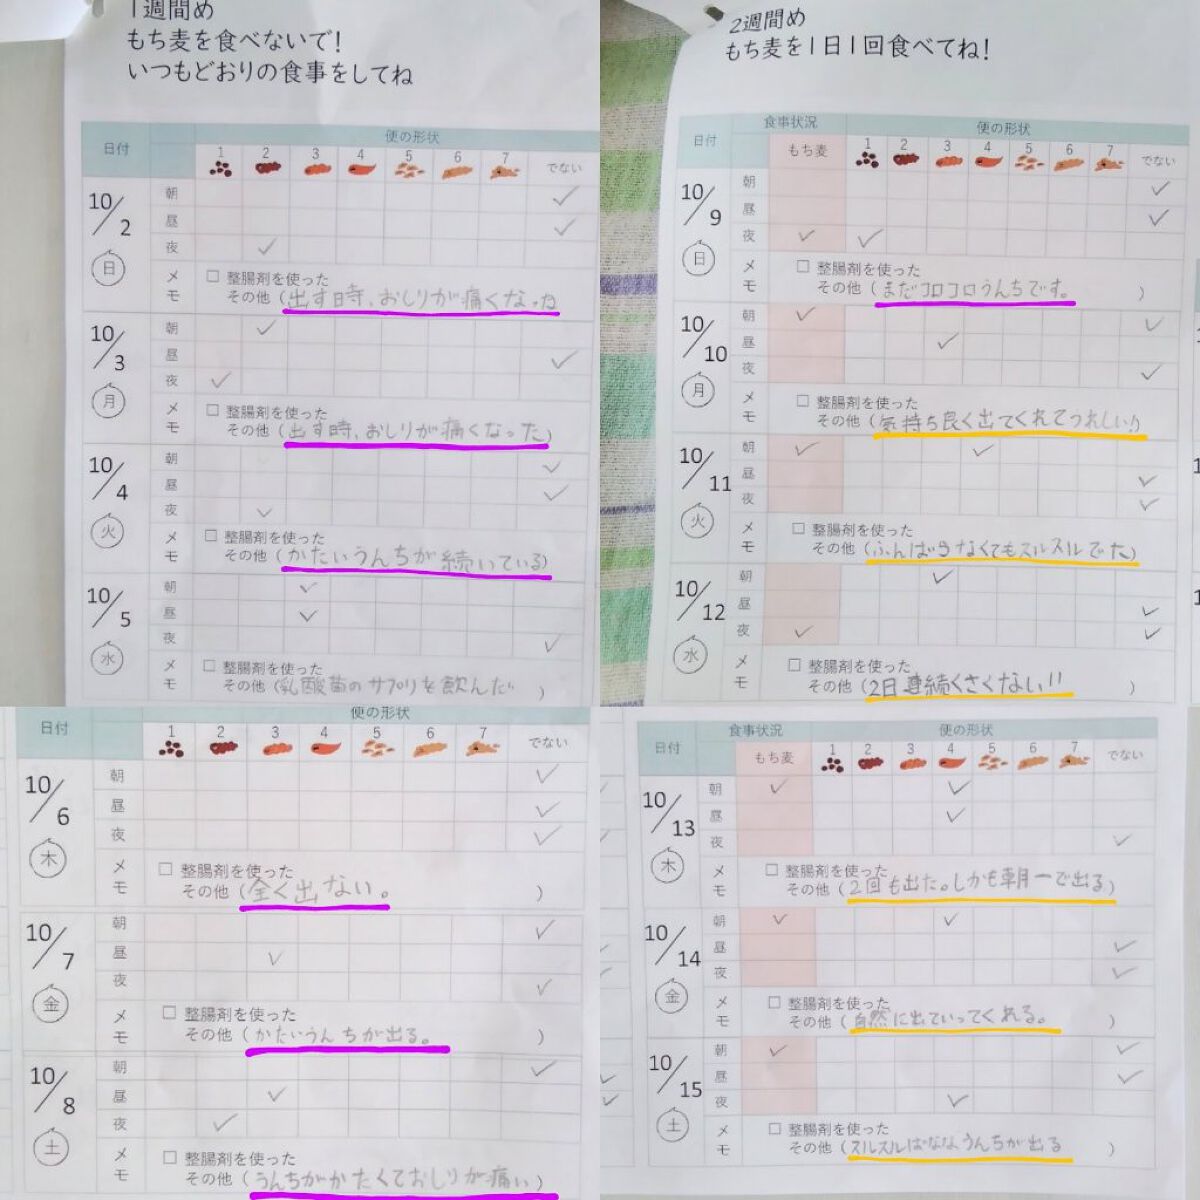 1週間め
もち麦を食べないで!
いつもどおりの食事をしてね
日付
便の形状
1 2 3 4 5 6 7 でない
10/2
日
朝
昼
夜
メモ
整腸剤を使った
その他(出す時、おしりが痛くなった
10/3
月
朝
昼
夜
メモ
整腸剤を使った
その他(出す時、おしりが痛くなった)
10/4
火
朝
昼
夜
メモ
整腸剤を使った
その他(かたいうんちが続いている)
10/5
水
朝
昼
夜
メモ
整腸剤を使った
その他(乳酸菌のサプリを飲んだ )
2週間め
もち麦を1日1回食べてね!
日付
食事状況
便の形状
もち麦 1 2 3 4 5 6 7 でない
10/9
日
朝
昼
夜
メモ
整腸剤を使った
その他(まだコロコロうんちです。 )
10/10
月
朝
昼
夜
メモ
整腸剤を使った
その他(気持ち良く出てくれてうれしい)
10/11
火
朝
昼
夜
メモ
整腸剤を使った
その他(ふんばらなくてもスルスルでた)
10/12
水
朝
昼
夜
メモ
整腸剤を使った
その他(2日連続くさくない!! )
日付
便の形状
1 2 3 4 5 6 7 でない
10/6
木
朝
昼
夜
メモ
整腸剤を使った
その他(全く出ない。 )
10/7
金
朝
昼
夜
メモ
整腸剤を使った
その他(かたいうんちが出る。 )
10/8
土
朝
昼
夜
メモ
整腸剤を使った
その他(うんちがかたくておしりが痛い)
日付
食事状況
便の形状
もち麦 1 2 3 4 5 6 7 でない
10/13
木
朝
昼
夜
メモ
整腸剤を使った
その他(2回も出た。しかも朝一で出る)
10/14
金
朝
昼
夜
メモ
整腸剤を使った
その他(自然に出ていってくれる。 )
10/15
土
朝
昼
夜
メモ
整腸剤を使った
その他(スルスルばななうんちが出る )